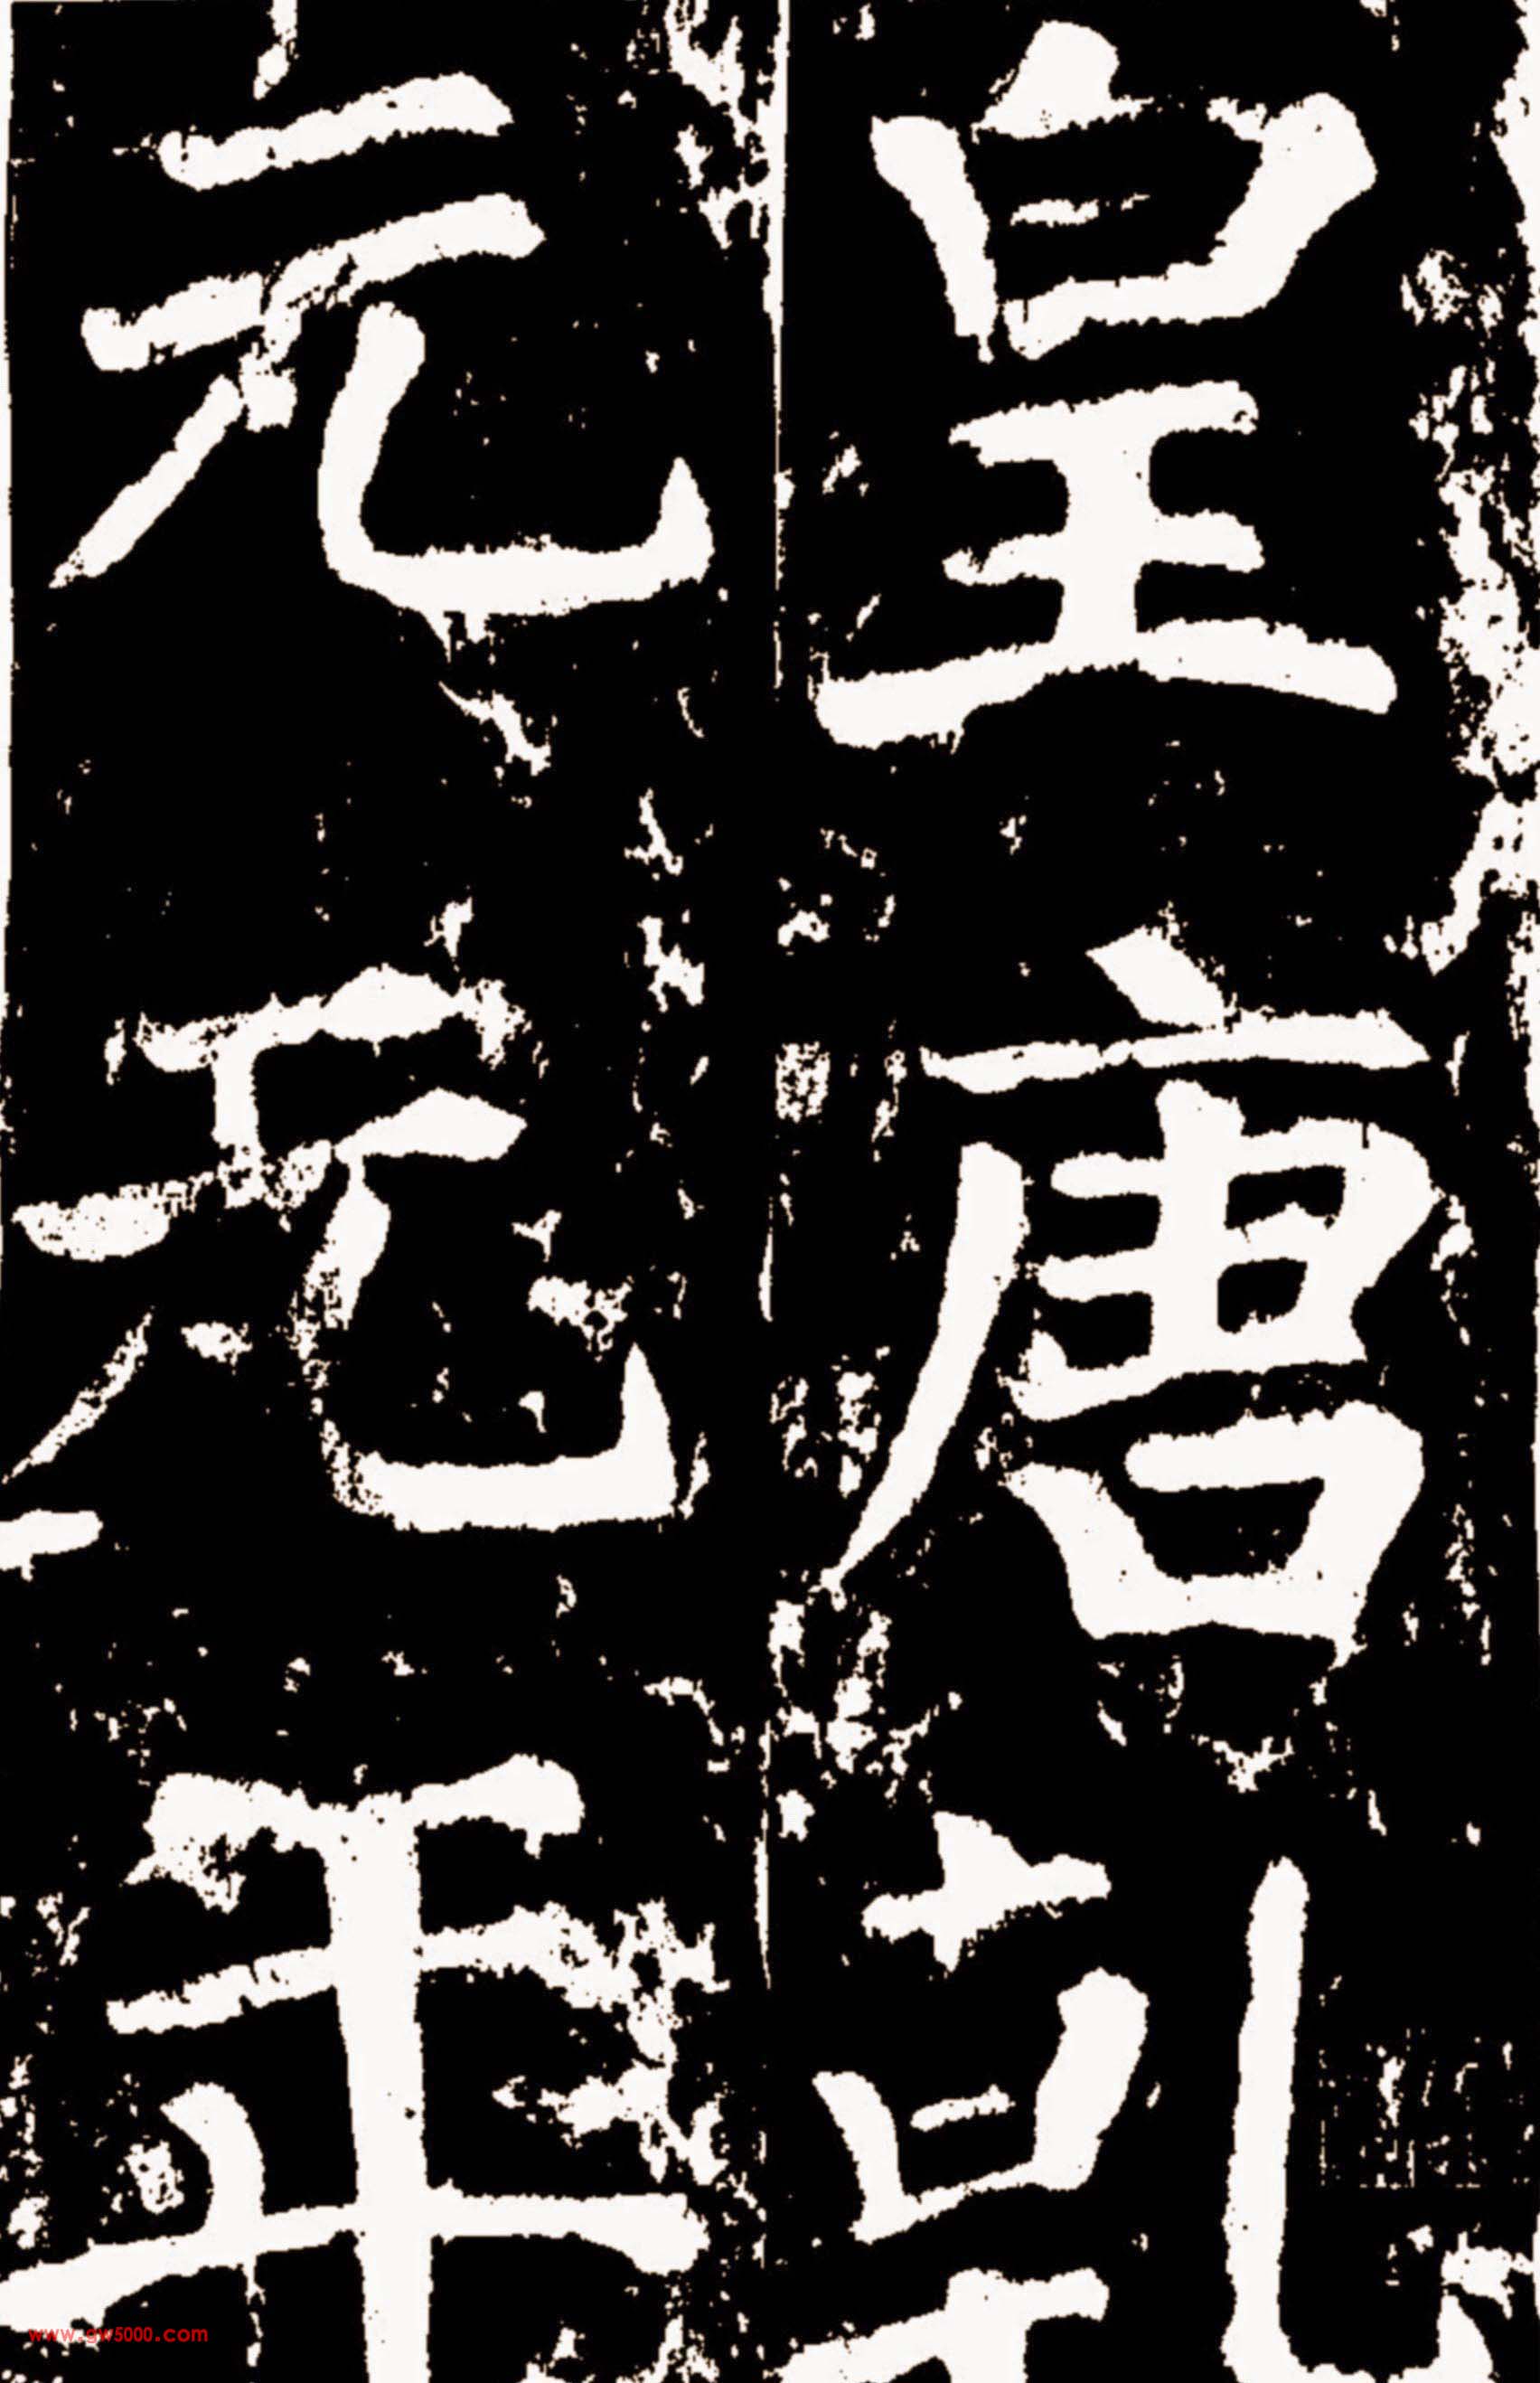 皇唐乹
元元年
www.gw5000.com